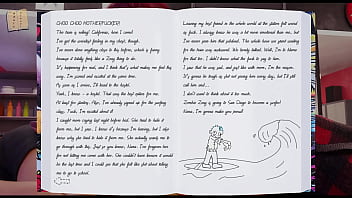 CHOO CHOO MOTHERFUCKER!
The team is rolling! California, here I come!
I've got the weirdest feeling in my chest, though.
I've never done anything close to this before, which is funny
because it totally feels like a Zoey thing to do.
It's happening for real, and I think that's what makes me feel this
way. I'm scared and excited at the same time.
By your age I mean, I'll head to the
Yeah, I know - is hopeful. That was the best option for me.
All best for Also, I've already signed up for the surfing
class. Fuck, I'm excited about it
I caught mom crying last night before bed. She had to hide it
from me, but I saw, I know it's because I'm leaving, but I also
know why she had to hide it from me. She actually wants me to
go through with this. Just so you know, Nana, I'm gonna
not telling mom with her. She couldn't leave because it could
be the last time and I could see that she felt like shit about telling
me to go to school.
Leaving my best friend in the whole world at the station felt weird
as fuck. I always knew he was a bit more emotional than me, but
I've never seen him that pale. The whole train was quiet waiting
for the team say awkward. We barely talked. Well, I'm to blame
for that too. I didn't know what the fuck to say to him.
I saw that he was sad, and just like with mom, I'm the reason.
It's gonna be tough as not seeing him every day, but I'll still
call him and...
I don't want to think about it too much.
Zombie Zoey is going to San Diego to become a surfer!
Nana, I'm gonna make you proud!